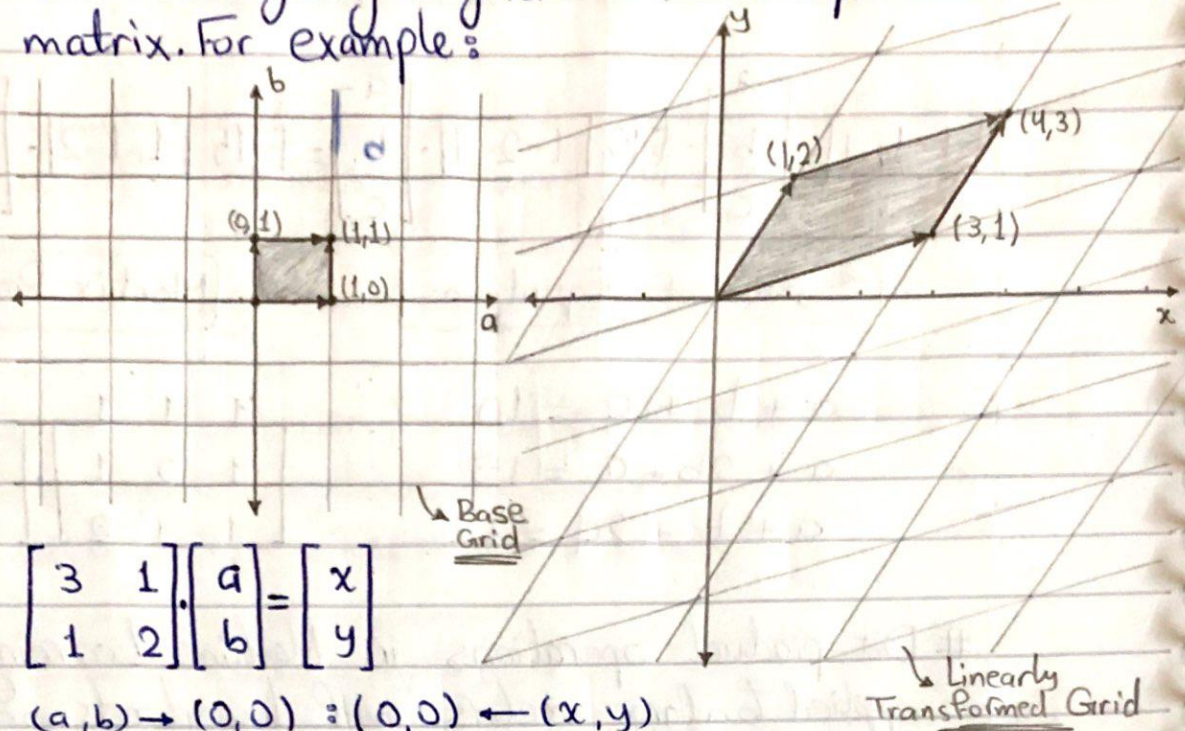 matrix. For example:
b
(0,1)
(1,1)
(1,0)
a
Base
Grid
y
(1,2)
(4,3)
(3,1)
x
Linearly
Transformed Grid
[3 1
1 2] · [a
b] = [x
y]
(a,b) → (0,0) : (0,0) ← (x,y)